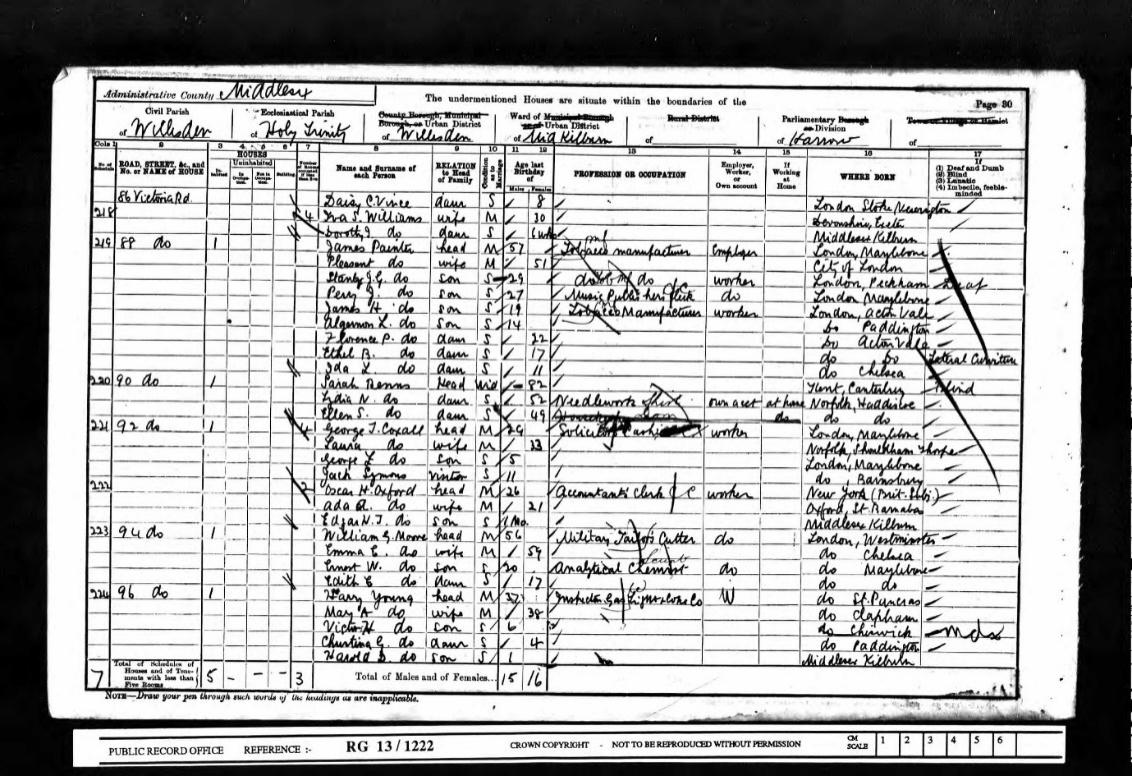 Administrative County Middlesex
The undermentioned Houses are situate within the boundaries of the
Page 30
Civil Parish of Willesden
Ecclesiastical Parish of Holy Trinity
County Borough, Municipal Borough, or Urban District of Willesden
Ward of Municipal Borough or Urban District of Mid Kilburn
Rural District of
Parliamentary Borough or Division of Harrow
Town or Village or Hamlet of
Cols 1 2 3 4 5 6 7 8 9 10 11 12 13 14 15 16 17
ROAD, STREET, &c., and No. or NAME of HOUSE
HOUSES
Uninhabited
Building
Name and Surname of each Person
RELATION to Head of Family
Condition as to Marriage
Age last Birthday of
Males Females
PROFESSION OR OCCUPATION
Employer, Worker, or Own account
If Working at Home
WHERE BORN
If (1) Deaf and Dumb (2) Blind (3) Lunatic (4) Imbecile, feeble-minded
86 Victoria Rd. Daisy C. Vince daur S 8 London Stoke Newington
218 4 S. Williams wife M 30 Devonshire, Exeter
Dorothy do daur S Middlesex Kilburn
219 88 do 1 James Painter head M 57 Tobacco manufacturer Employer London, Marylebone
Pleasant do wife M 51 City of London
Stanley J.G. do son S 29 do do worker London, Peckham Deaf
Percy do son S 27 Music Publisher Clerk do London Marylebone
James H. do son S 19 Tobacco Manufacturer worker London, Acton Vale
Algernon L. do son S 14 Do Paddington
Florence P. do daur S 22 Do Acton Vale
Ethel B. do daur S 17 do do Lateral Curvature
Ida L do daur S 11 do Chelsea
220 90 do 1 Sarah Head Wid 82 Kent, Canterbury Blind
Lydia N. do daur S 52 Needlework own acct at home Norfolk,
Ellen S. do daur S 49 do do do
221 92 do 1 4 George T. Coxall head M 29 Solicitors Cashier worker London, Marylebone
Laura do wife M 33 Norfolk,
George L do son S 5 London, Marylebone
Jack Symons visitor S 11 do, Barnsbury
222 2 Oscar H. Oxford head M 26 Accountants Clerk C worker New York (Brit. Subj.)
Ada do wife M 21 Oxford, St Barnabas
Edgar do son S 1 Mo. Middlesex Kilburn
223 94 do 1 William G. Moore head M 56 Military Tailors Cutter do London, Westminster
Emma E. do wife M 59 do Chelsea
Ernest W. do son S 20 Analytical Chemist do do Marylebone
Edith E do daur S 17 do do
224 96 do 1 Harry Young head M 37 Inspector Gas Light & Coke Co W do St. Pancras
May A do wife M 38 do Clapham
Victor H do son S 6 do Chiswick Mdx
Christina G. do daur S 4 do Paddington
Harold do son S 1 Middlesex Kilburn
7 Total of Schedules of Houses and of Tenements with less than Five Rooms 5 - - - 3 Total of Males and of Females... 15 16
NOTE—Draw your pen through such words of the headings as are inapplicable.
PUBLIC RECORD OFFICE REFERENCE :- RG 13/1222 CROWN COPYRIGHT - NOT TO BE REPRODUCED WITHOUT PERMISSION CM SCALE 1 2 3 4 5 6